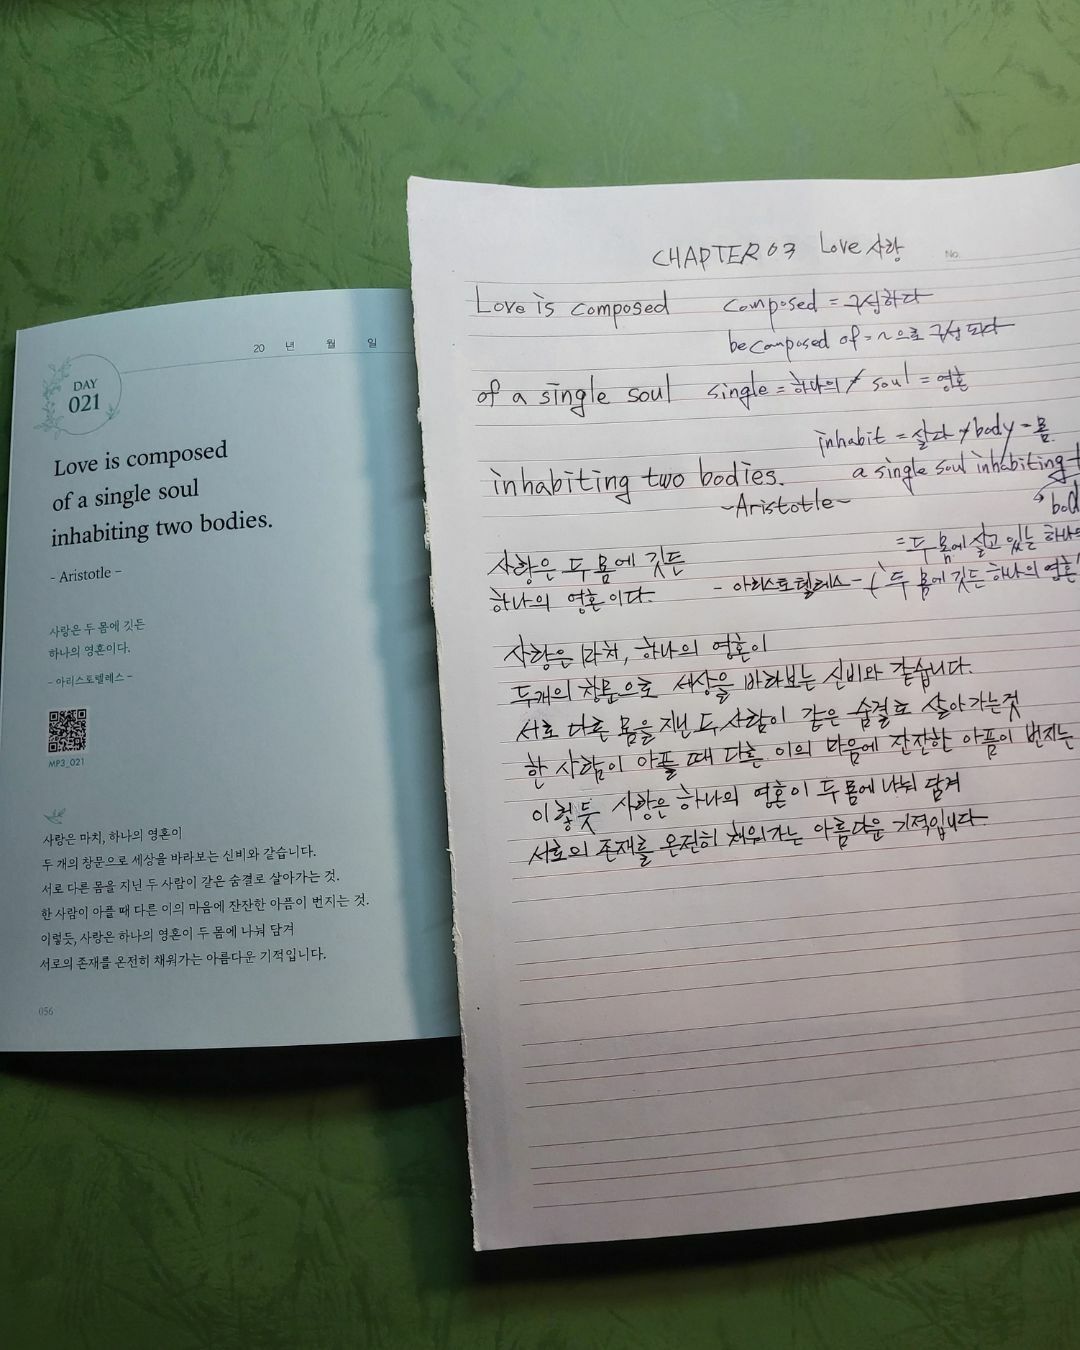 20 년 월 일
DAY
021
Love is composed
of a single soul
inhabiting two bodies.
- Aristotle -
사랑은 두 몸에 깃든
하나의 영혼이다.
- 아리스토텔레스 -
MP3_021
사랑은 마치, 하나의 영혼이
두 개의 창문으로 세상을 바라보는 신비와 같습니다.
서로 다른 몸을 지닌 두 사람이 같은 숨결로 살아가는 것.
한 사람이 아플 때 다른 이의 마음에 잔잔한 아픔이 번지는 것.
이렇듯, 사랑은 하나의 영혼이 두 몸에 나눠 담겨
서로의 존재를 온전히 채워가는 아름다운 기적입니다.
056
CHAPTER 03 Love 사랑
No.
Love is composed composed = 구성하다
be composed of = ~으로 구성되다
of a single soul single = 하나의 / soul = 영혼
inhabit = 살다 / body - 몸
inhabiting two bodies. a single soul inhabiting
~Aristotle~
= 두 몸에 살고 있는
사랑은 두 몸에 깃든
하나의 영혼이다. - 아리스토텔레스 - 두 몸에 깃든 하나의 영혼
사랑은 마치, 하나의 영혼이
두개의 창문으로 세상을 바라보는 신비와 같습니다.
서로 다른 몸을 지닌 두 사람이 같은 숨결로 살아가는것
한 사람이 아플 때 다른 이의 마음에 잔잔한 아픔이 번지는
이렇듯 사랑은 하나의 영혼이 두 몸에 나눠 담겨
서로의 존재를 온전히 채워가는 아름다운 기적입니다